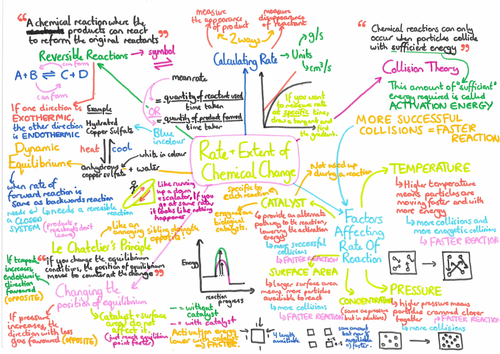 "A chemical reaction where the
products can react
to reform the original reactants"
Reversible Reactions
symbol
can form
A+B ⇌ C+D
can form
If one direction is
EXOTHERMIC,
the other direction
is ENDOTHERMIC
Example
Hydrated
Copper Sulfate
heat
cool
anhydrous
copper sulfate + water
Blue
in colour
white in colour
Dynamic
Equilibrium
when rate of
forward reaction is
same as backwards reaction
needs a reversible
reaction
a CLOSED
SYSTEM
(products + reactants
can't leave)
Like running
up a down
escalator, if you
go at same rate,
it looks like nothing
happens
Like an
Le Chatelier's Principle
"If you change the equilibrium
conditions, the position of equilibrium
moves to counteract the change"
Changing the
position of equilibrium
If temp
increases,
endothermic
direction
favoured
(OPPOSITE)
If pressure
increases, the
direction with less
gas favoured (OPPOSITE)
Catalyst + surface
area do not
affect it
(just reach equilibrium
point faster)
measure
the appearance
of product
measure
disappearance
of reactant
2 ways
Calculating Rate
Units
g/s
cm³/s
mean rate
= quantity of reactant used
time taken
OR
= quantity of product formed
time taken
If you want
to measure rate
at specific times,
draw a tangent and
find the
gradient.
Rate + Extent of
Chemical Change
"Chemical reactions can only
occur when particles collide
with sufficient energy"
Collision Theory
This amount of "sufficient"
energy required is called
ACTIVATION ENERGY
MORE SUCCESSFUL
COLLISIONS = FASTER
REACTION
Factors
Affecting
Rate Of
Reaction
TEMPERATURE
Higher temperature
means particles are
moving faster and with
more energy
more collisions
and more energetic collisions
FASTER REACTION
PRESSURE
higher pressure means
particles crammed closer
together
more collisions
FASTER REACTION
CONCENTRATION
(same as pressure
but in solution)
CATALYST
Not used up
during a reaction
specific to
each reaction
enzymes are
biological
catalysts
provide an alternate
pathway to the reaction,
lowering the activation
energy
more successful
collisions
FASTER REACTION
SURFACE AREA
larger surface area
means more particles
available to react
more collisions
FASTER REACTION
Energy
reaction
progress
- = without
catalyst
- = with catalyst
Activation energy